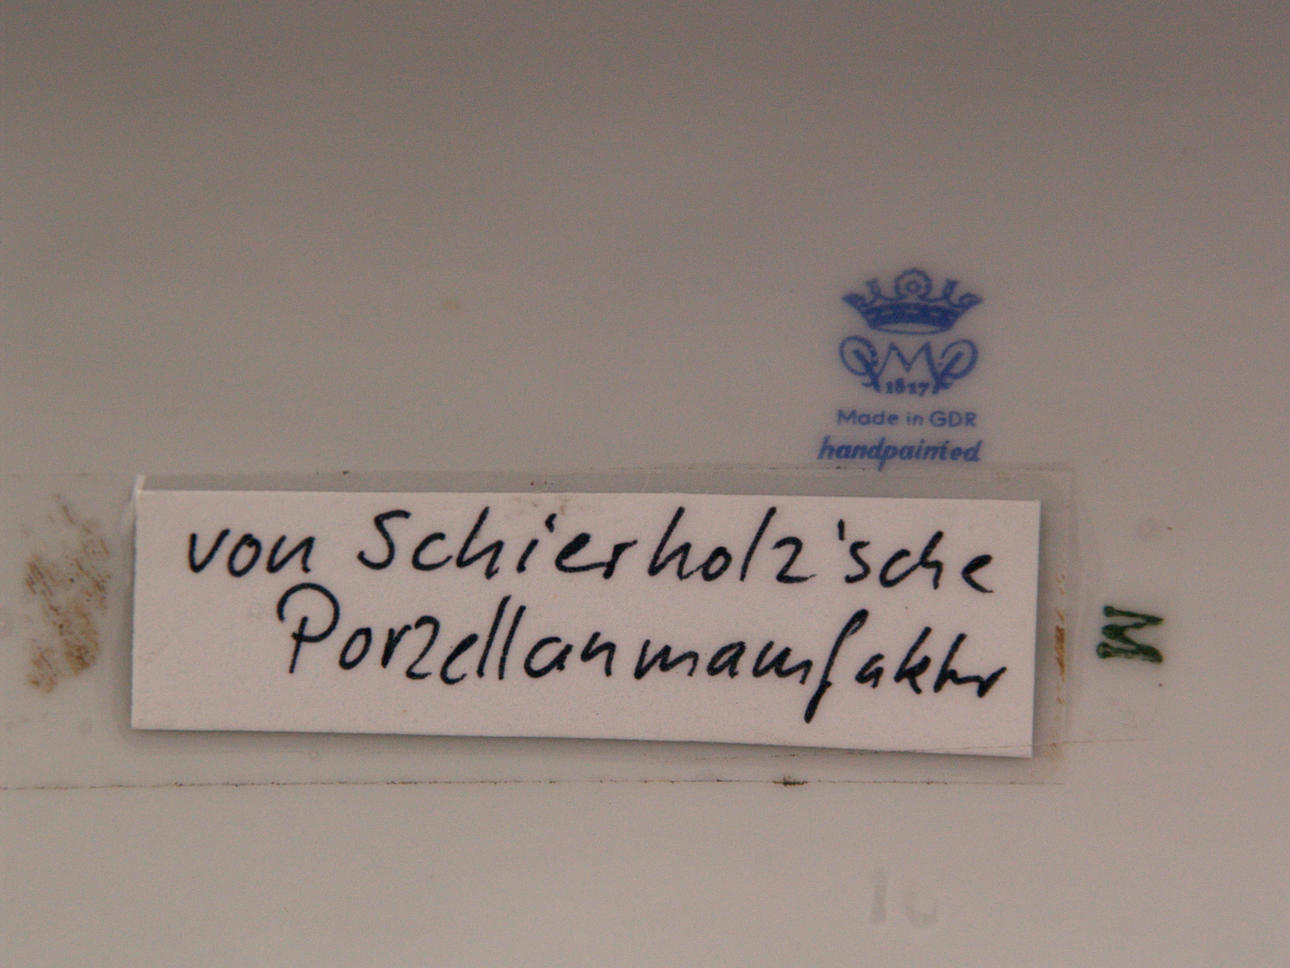 PMP
1817
Made in GDR
handpainted
von Schierholz'sche
Porzellanmanufaktur
M
10